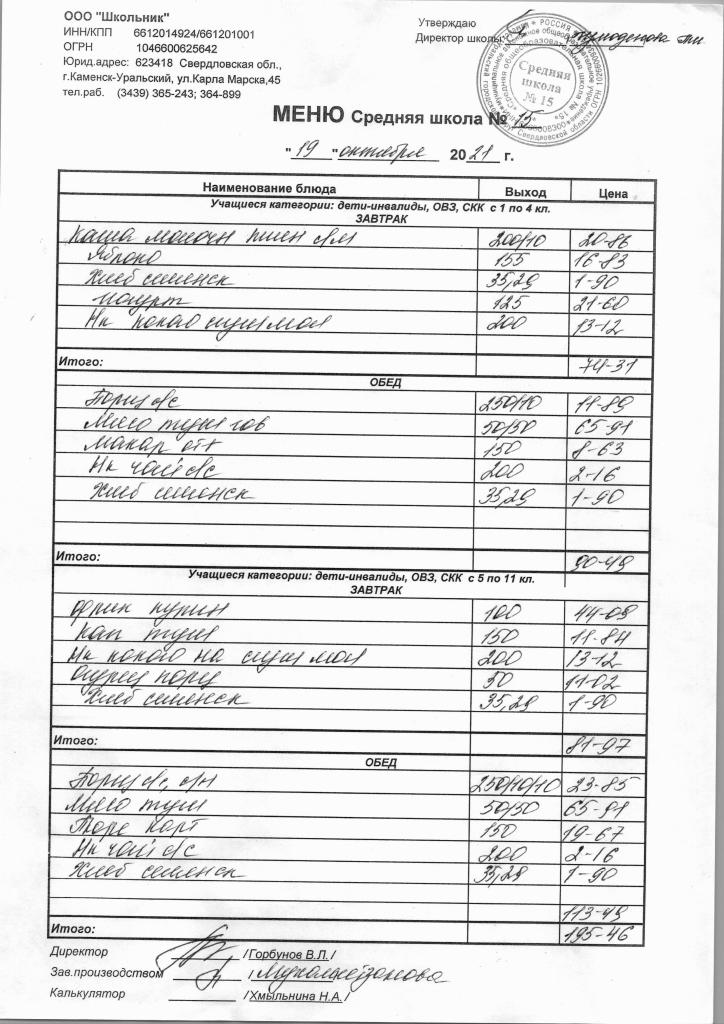 ООО "Школьник"
ИНН/КПП 6612014924/661201001
ОГРН 1046600625642
Юрид.адрес: 623418 Свердловская обл.,
г.Каменск-Уральский, ул.Карла Марска,45
тел.раб. (3439) 365-243; 364-899
Утверждаю
Директор школы:
Средняя
школа
№ 15
МЕНЮ Средняя школа № 15
"19" октября 2021 г.
Наименование блюда Выход Цена
Учащиеся категории: дети-инвалиды, ОВЗ, СКК с 1 по 4 кл.
ЗАВТРАК
Каша молочн пшен 200/10 20-86
Яблоко 155 16-83
Хлеб 35,29 1-90
йогурт 125 21-60
Нк какао 200 13-12
Итого: 74-31
ОБЕД
Борщ с/с 250/10 11-89
Мясо туш гов 50/50 65-91
макар отв 150 8-63
Нк чай с/с 200 2-16
Хлеб 35,29 1-90
Итого: 90-49
Учащиеся категории: дети-инвалиды, ОВЗ, СКК с 5 по 11 кл.
ЗАВТРАК
курин 100 44-09
Кап туш 150 11-84
Нк какао на 200 13-12
Огурец порц 50 11-02
Хлеб 35,29 1-90
Итого: 81-97
ОБЕД
Борщ 250/10/10 23-85
Мясо туш 50/50 65-91
Пюре карт 150 19-67
Нк чай с/с 200 2-16
Хлеб 35,29 1-90
113-49
Итого: 195-46
Директор /Горбунов В.Л. /
Зав.производством /
Калькулятор /Хмыльнина Н.А. /